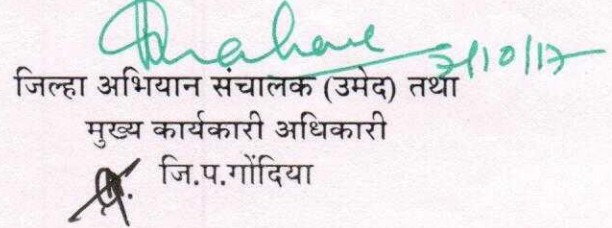 3/10/17
जिल्हा अभियान संचालक (उमेद) तथा
मुख्य कार्यकारी अधिकारी
जि.प.गोंदिया